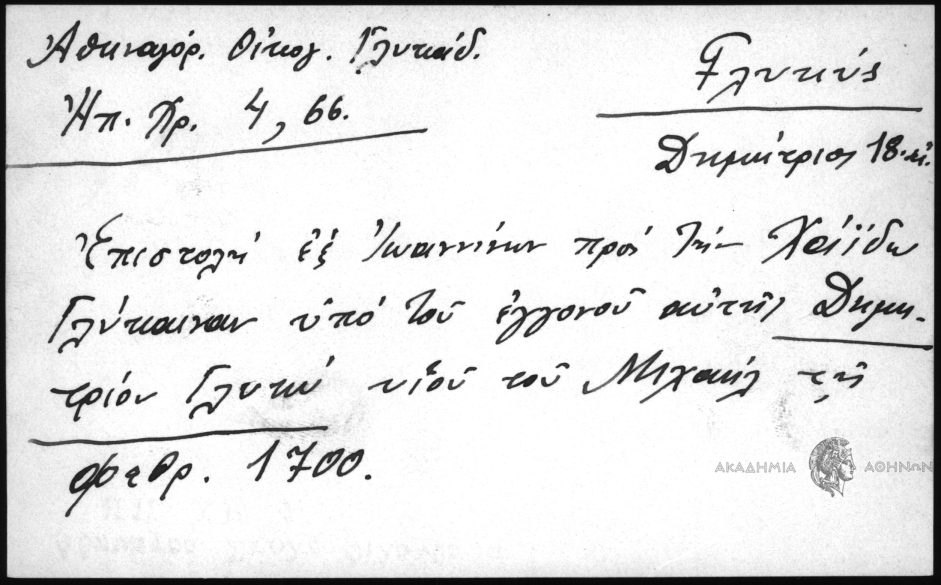 Ἀθηναγόρ. Οἰκογ. Γλυκάδ.
Ἠπ. Χρ. 4, 66.
Γλυκύς
Δημήτριος 18. αἰ.
Ἐπιστολὴ ἐξ Ἰωαννίνων πρὸς τὴν Χάϊδω
Γλύκαιναν ὑπὸ τοῦ ἐγγονοῦ αὐτῆς Δημη-
τρίου Γλυκύ υἱοῦ τοῦ Μιχαὴλ τῆς
φεβρ. 1700.
ΑΚΑΔΗΜΙΑ ΑΘΗΝΩΝ